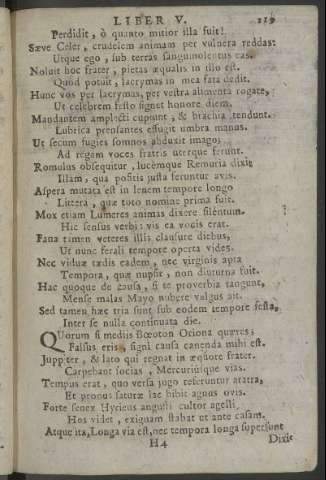 LIBER V. 119
Perdidit, ò quanto mitior illa fuit!
Sæve Celer, crudelem animam per vulnera reddas:
Utque ego, sub terras sanguinolentus eas.
Noluit hoc frater, pietas æqualis in illo est.
Quod potuit, lacrymas in mea fata dedit.
Hunc vos per lacrymas, per vestra alimenta rogate,
Ut celebrem festo signet honore diem.
Mandantem amplecti cupiunt, & brachia tendunt.
Lubrica prensantes effugit umbra manus.
Ut secum fugiens somnos abduxit imago;
Ad regem voces fratris uterque ferunt.
Romulus obsequitur, lucemque Remuria dixit
Illam, qua positis justa feruntur avis.
Aspera mutata est in lenem tempore longo
Littera, quæ toto nomine prima fuit.
Mox etiam Lumeres animas dixere silentum.
Hic sensus verbi: vis ea vocis erat.
Fana tamen veteres illis clausere diebus,
Ut nunc ferali tempore operta vides.
Nec viduæ tædis eadem, nec virginis apta
Tempora, quæ nupsit, non diuturna fuit.
Hac quoque de causa, si te proverbia tangunt,
Mense malas Mayo nubere valgus ait.
Sed tamen hæc tria sunt sub eodem tempore festa,
Inter se nulla continuata die.
QUorum si mediis Bœoton Ociona quæres;
Falsus eris, signi causa canenda mihi est.
Juppiter, & lato qui regnat in æquore frater.
Carpebant socias, Mercuriusque vias.
Tempus erat, quo versa jugo referuntur aratra,
Et pronus saturæ lac bibit agnus ovis.
Forte senex Hyrieus angusti cultor agelli,
Hos videt, exiguam stabat ut ante casam.
Atque ita, Longa via est, nec tempora longa supersunt
H4 Dixit